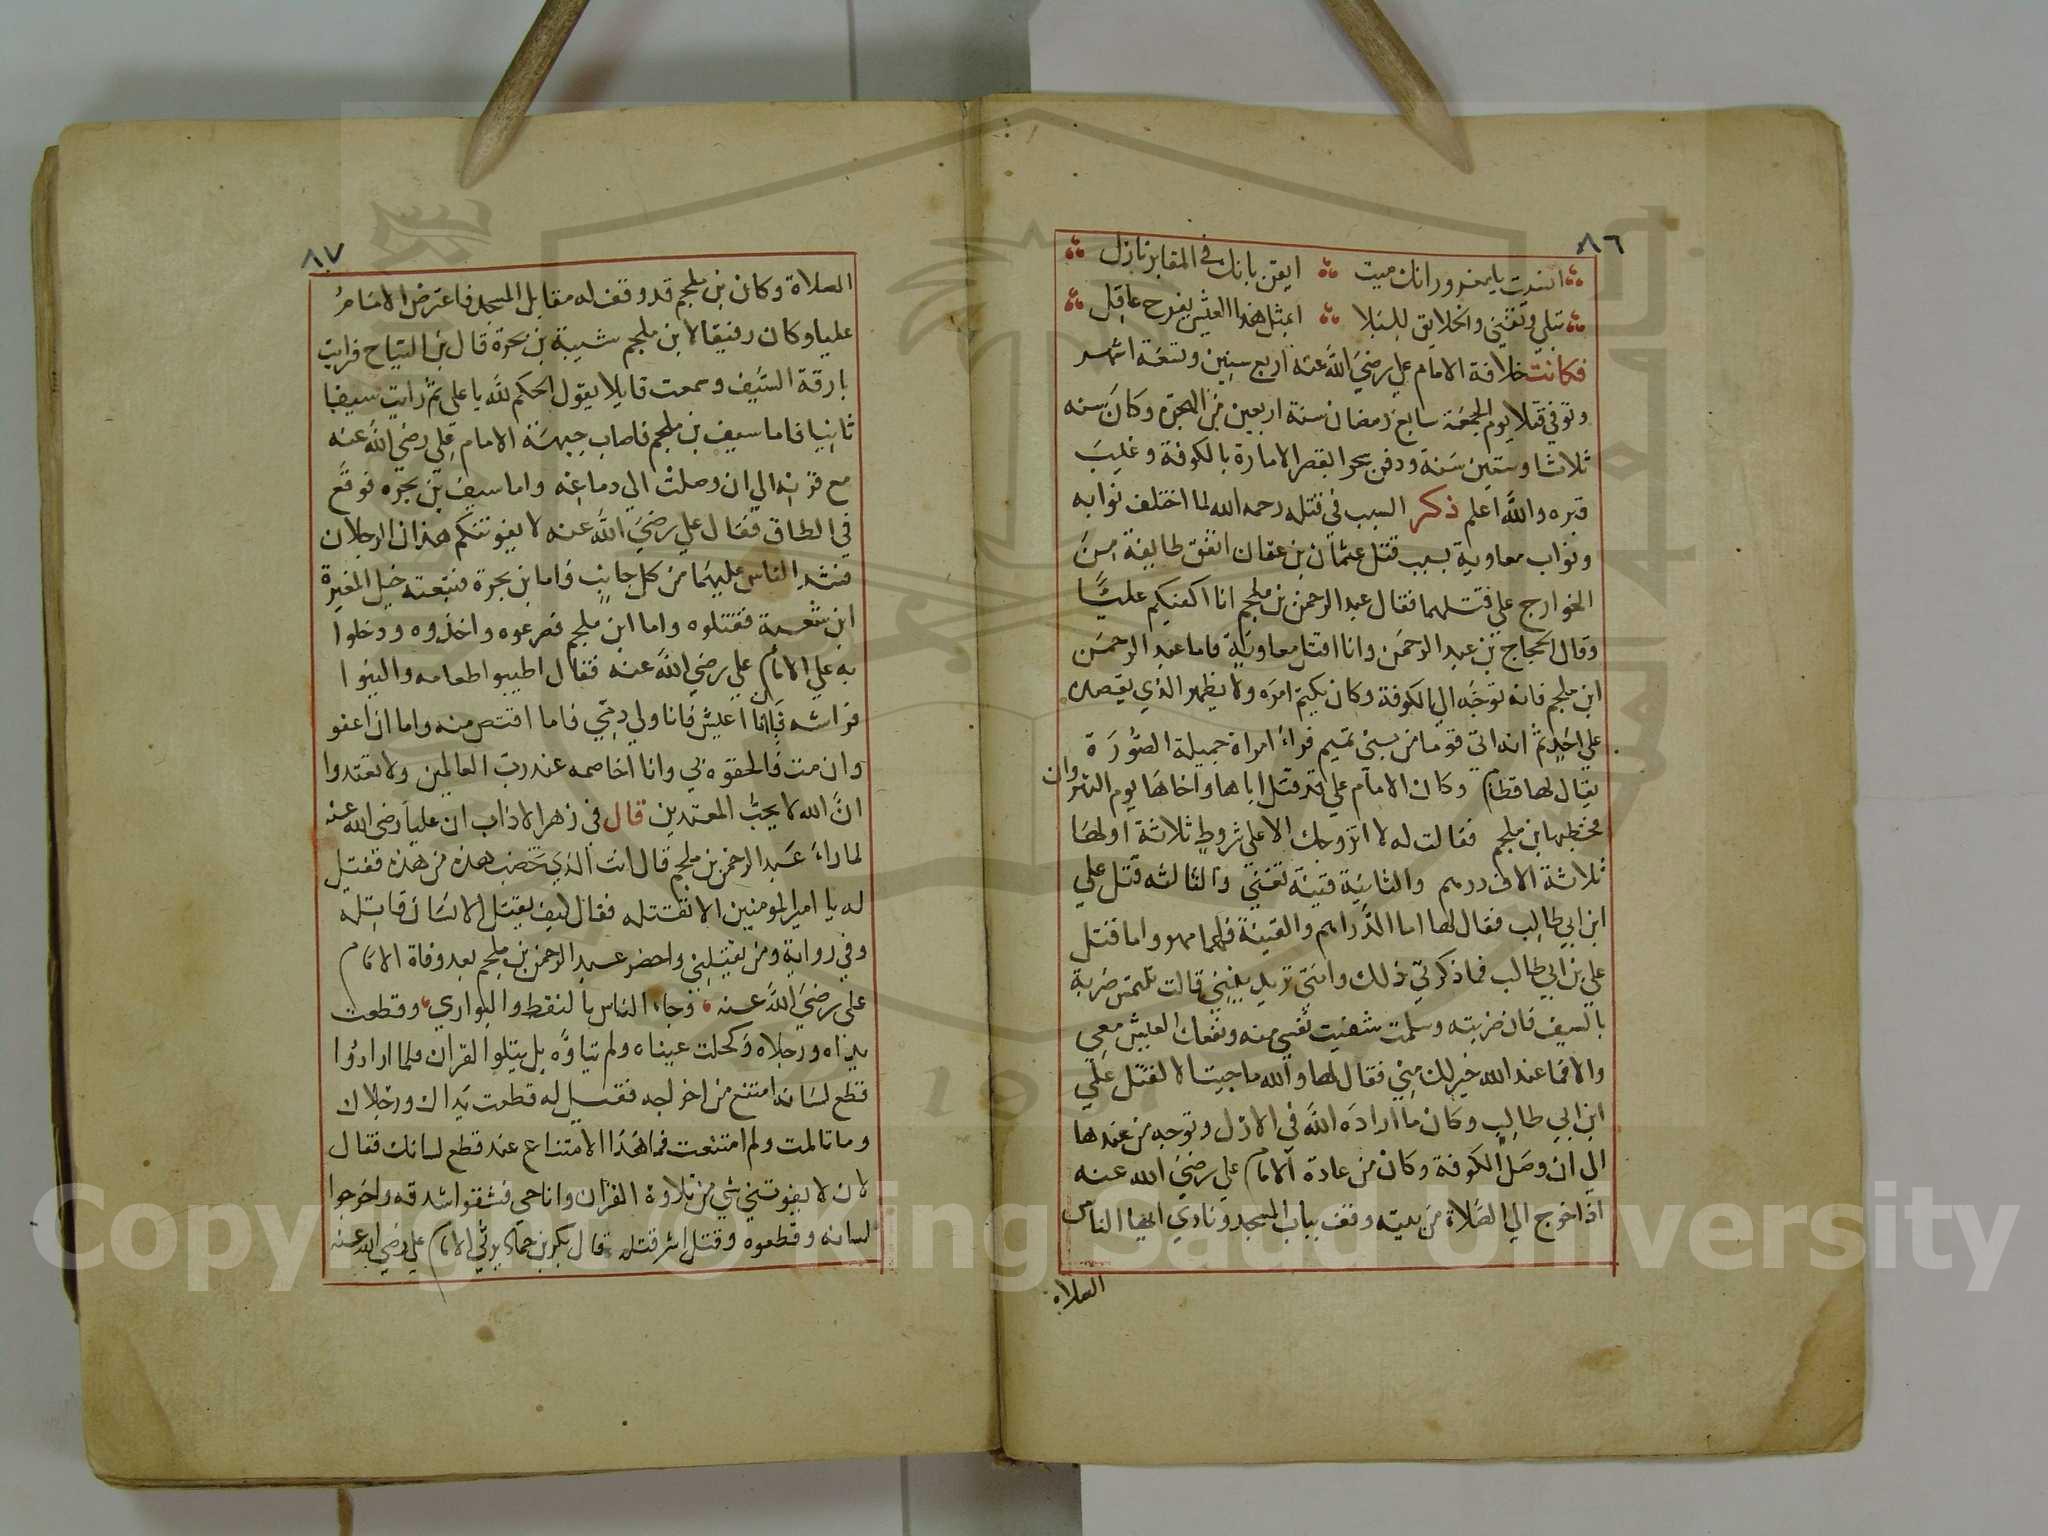 ٨٦
انسيت يا مغرور انك ميت ايقن بانك في المقابر نازل
تبلي وتفني والخلايق للبلا ابمثل هذا العيش يفرح عاقل
فكانت خلافة الامام علي رضي الله عنه اربع سنين وتسعة اشهر
وتوفي قتلا يوم الجمعة سابع رمضان سنة اربعين من الهجرة وكان سنه
ثلاثا وستين سنة ودفن بقصر الامارة بالكوفة وغيب
قبره والله اعلم ذكر السبب في قتله رحمه الله لما اختلف نوابه
ونواب معاوية بسبب قتل عثمان بن عفان اتفق طايفة من
الخوارج علي قتلهما فقال عبد الرحمن بن ملجم انا اكفيكم عليًّا
وقال الحجاج بن عبد الرحمن وانا اقتل معاوية فاما عبد الرحمن
ابن ملجم فانه توجه الي الكوفة وكان يكتم امره ولا يظهر الذي يقصده
علي احد ثم انه اتي قوما من بني تميم فراء امراة جميلة الصورة
يقال لها قطام وكان الامام علي قد قتل اباها واخاها يوم النهروان
فخطبها ابن ملجم فقالت له لا اتزوجك الا علي شروط ثلاثة اولها
ثلاثة الاف درهم والثانية قينة تغني والثالثه قتل علي
ابن ابي طالب فقال لها اما الدراهم والقينة فلهما مهر واما قتل
علي بن ابي طالب فما ذكرتي ذلك وانتي تريديني قالت تلتمس ضربة
بالسيف فان ضربته وسلمت شفيت نفسي منه ونفعك العيش معي
والا فما عند الله خير لك مني فقال لها والله ما جيت الا لقتل علي
ابن ابي طالب وكان ما اراده الله في الازل وتوجه من عندها
الي ان وصل الكوفة وكان من عادة الامام علي رضي الله عنه
اذا خرج الي الصلاة من بيته وقف بباب المسجد ونادي ايها الناس
الصلاة
٨٧
الصلاة وكان بن ملجم قد وقف له مقابل المسجد فاعترض الامام
عليا وكان رفيقا لابن ملجم شبيبة بن بجرة قال بن التياح فرايت
بارقة السيف وسمعت قايلا يقول الحكم لله يا علي ثم رايت سيفا
ثانيا فاما سيف بن ملجم فاصاب جبهة الامام علي رضي الله عنه
مع قرنه الي ان وصلت الي دماغه واما سيف بن بجره فوقع
في الطاق فقال علي رضي الله عنه لا يفوتنكم هذان الرجلان
فشد الناس عليهما من كل جانب فاما بن بجرة فتبعته خيل المغيرة
ابن شعبة فقتلوه واما ابن ملجم فصرعوه واخذوه ودخلوا
به علي الامام علي رضي الله عنه فقال اطيبوا طعامه والينوا
فراشه فان انا اعيش فانا ولي دمي فاما اقتص منه واما ان اعفو
وان مت فالحقوه بي وانا اخاصمه عند رب العالمين ولا تعتدوا
ان الله لا يحب المعتدين قال في زهر الاداب ان عليا رضي الله عنه
لما راء عبد الرحمن بن ملجم قال انت الذي تخضب هذه من هذه فقيل
له يا امير المومنين الا تقتله فقال كيف يقتل الانسان قاتله
وفي رواية ومن يقتلني واحضر عبد الرحمن بن ملجم بعد وفاة الامام
علي رضي الله عنه فجاء الناس بالنفط والبواري وقطعت
يداه ورجلاه وكحلت عيناه ولم يتاوه بل يتلوا القران فلما ارادوا
قطع لسانه امتنع من اخراجه فقيل له قطعت يداك ورجلاك
وما تالمت ولم امتنعت فما هذا الامتناع عند قطع لسانك فقال
لان لا يفوتني شي من تلاوة القران وانا حي فشقوا شدقه واخرجوا
لسانه وقطعوه وقتل اشر قتله قال بكر بن حماد يرثي الامام علي رضي الله عنه